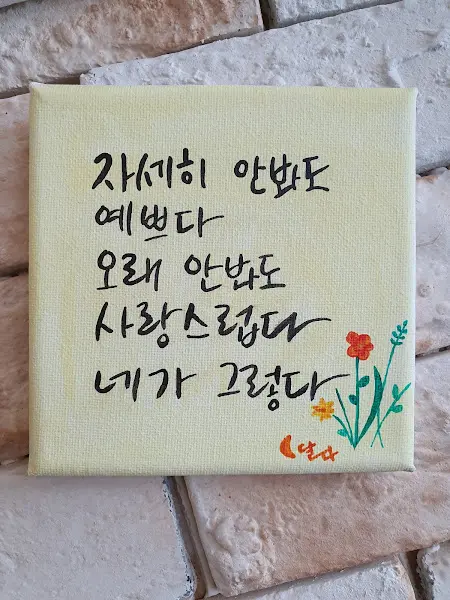 자세히 안봐도
예쁘다
오래 안봐도
사랑스럽다
네가 그렇다
달다